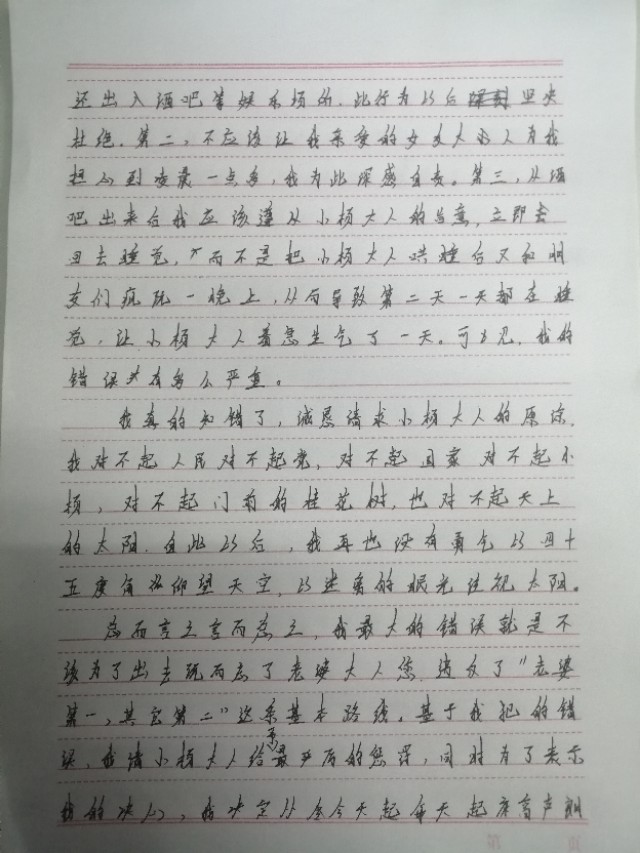 还出入酒吧等娱乐场所,此行为以后坚决
杜绝。第二,不应该让我亲爱的女友大人为我
担心到凌晨一点多,我为此深感自责。第三,从酒
吧出来后我应该遵从小杨大人的旨意,立即去
回去睡觉,而不是把小杨大人哄睡后又和朋
友们疯玩一晚上,从而导致第二天一天都在睡
觉,让小杨大人着急生气了一天。可见,我的
错误有多么严重。
我真的知错了,诚恳请求小杨大人的原谅。
我对不起人民对不起党,对不起国家 对不起小
杨,对不起门前的桂花树,也对不起天上
的太阳。自此以后,我再也没有勇气以四十
五度角仰望天空,以迷离的眼光注视太阳。
总而言之言而总之,我最大的错误就是不
该为了出去玩而忘了老婆大人您,违反了“老婆
第一,其它第二”这条基本路线。基于我犯的错
误,我请小杨大人给予最严厉的惩罚,同时为了表示
我的决心,我决定从今天起每天起床高声朗